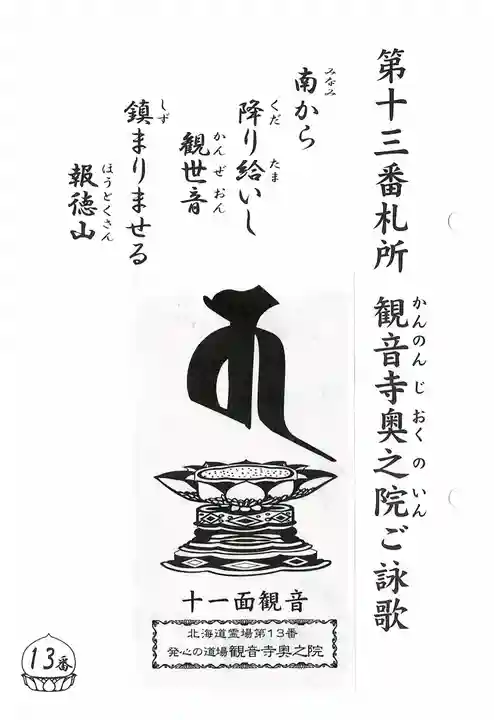 第十三番札所 観音寺奥之院ご詠歌
かんのんじおくのいん
南から
みなみ
降り給いし
くだ たま
観世音
かんぜおん
鎮まりませる
しず
報徳山
ほうとくさん
十一面観音
北海道霊場第13番
発心の道場 観音寺奥之院
13番